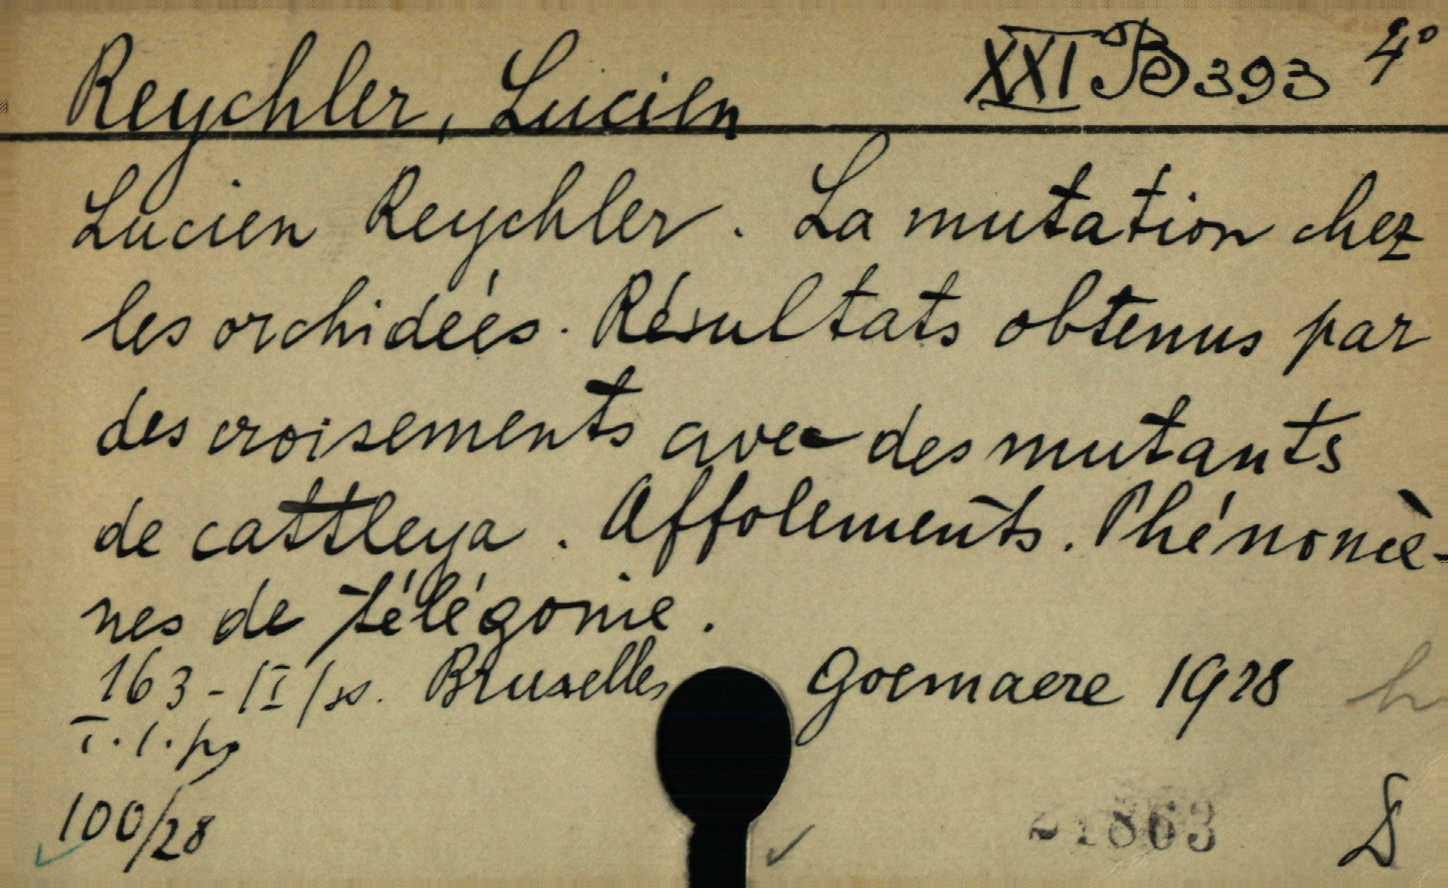 Reychler, Lucien XXI Be 393 4°
Lucien Reychler. La mutation chez
les orchidées. Résultats obtenus par
des croisements avec des mutants
de cattleya. Affolements. Phénomè-
nes de télégonie.
163 - II Bruxelles Goemaere 1928
100/28
21863